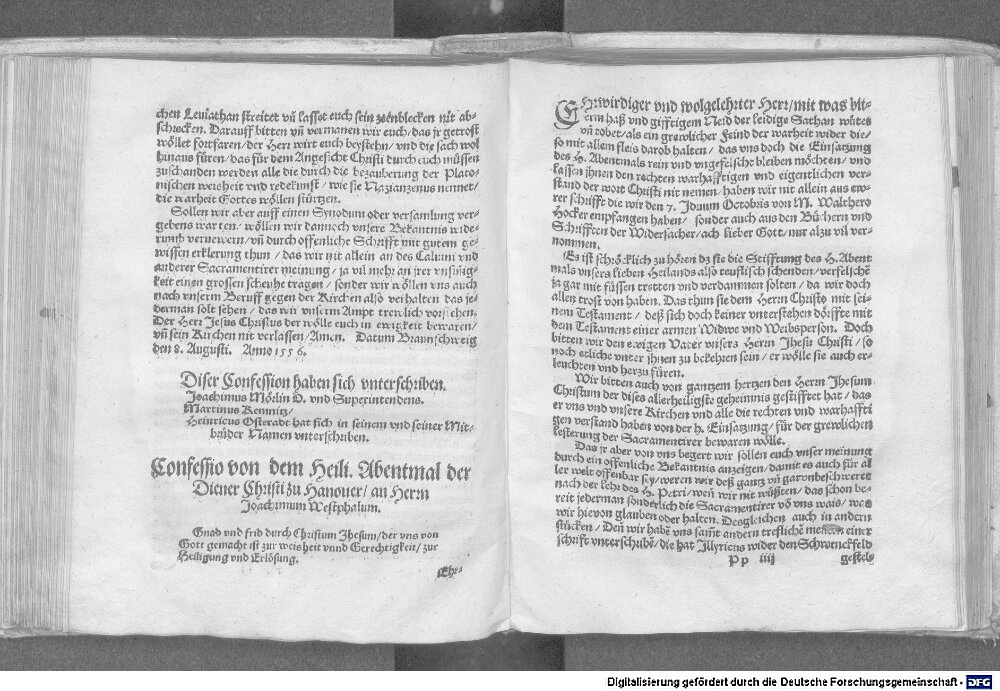 chen Leuiathan streitet vñ lasset euch sein zeenblecken nit ab-
schrecken. Darauff bitten vñ vermanen wir euch/ das jr getrost
wöllet fortfaren/ der Herr wirt euch beystehn/ vnd die sach wol
hinaus füren/ das für dem Angesicht Christi durch euch müssen
zuschanden werden alle die durch die bezauberung der Plato-
nischen weisheit vnd redekunst/ wie sie Nazianzenus nennet/
die warheit Gottes wöllen stürtzen.
Sollen wir aber auff einen Synodum oder versamlung ver-
gebens warten/ wöllen wir dannoch vnsere Bekantnis wide-
rumb vernewern/ vñ durch offenliche Schrifft mit gutem ge-
wissen erklerung thun/ das wir nit allein an des Caluini vnd
anderer Sacramentirer meinung/ ja vil mehr an jrer vnsinnig-
keit einen grossen scheuhe tragen/ sonder wir wöllen vns auch
nach vnserm Beruff gegen der Kirchen also verhalten das je-
derman solt sehen/ das wir vnserm Ampt trewlich vorstehen.
Der Herr Jesus Christus der wölle euch in ewigkeit bewaren/
vñ sein Kirchen nit verlassen/ Amen. Datum Braunschweig
den 8. Augusti. Anno 1556.
Diser Confession haben sich vnterschriben.
Joachimus Mörlin D. vnd Superintendens.
Martinus Kemnitz/
Heinricus Osterodt hat sich in seinem vnd seiner Mit-
brüder Namen vnterschriben.
Confessio von dem Heili. Abentmal der
Diener Christi zu Hanouer/ an Herrn
Joachimum Westphalum.
Gnad vnd frid durch Christum Jhesum/ der vns von
Gott gemacht ist zur weisheit vnnd Gerechtigkeit/ zur
Heiligung vnd Erlösung.
Ehr-
EHrwirdiger vnd wolgelehrter Herr/ mit was bit-
term haß vnd gifftigem Neid der leidige Sathan wütet
vñ tobet/ als ein grewlicher Feind der warheit wider die/
so mit allem fleis darob halten/ das vns doch die Einsatzung
des H. Abentmals rein vnd vngefelscht bleiben möchten/ vnd
lassen jhnen den rechten warhafftigen vnd eigentlichen ver-
stand der wort Christi nit nemen/ haben wir nit allein aus ewo-
rer schrifft die wir den 7. Iduum Octobris von M. Walthero
Hocker empfangen haben/ sonder auch aus den Büchern vnd
Schrifften der Widersacher/ ach lieber Gott/ nur alzu vil ver-
nommen.
Es ist schröcklich zu hören dz sie die Stifftung des H. Abent
mals vnsers lieben Heilands also teuflisch schenden/ verfelschẽ
ja gar mit füssen tretten vnd verdammen solten/ da wir doch
allen trost von haben. Das thun sie dem Herrn Christo mit sei-
nem Testament/ deß sich doch keiner vnterstehen dörffte mit
dem Testament einer armen Widwe vnd Weibsperson. Doch
bitten wir den ewigen Vater vnsers Herrn Jhesu Christi/ so
noch etliche vnter jhnen zu bekehren sein/ er wölle sie auch er-
leuchten vnd herzu füren.
Wir bitten auch von gantzem hertzen den Herrn Jhesum
Christum der dises allerheiligste geheimnis gestifftet hat/ das
er vns vnd vnsere Kirchen vnd alle die rechten vnd warhaffti
gen verstand haben von der h. Einsatzung/ für der grewlichen
lesterung der Sacramentirer bewaren wölle.
Das jr aber von vns begert wir sollen euch vnser meinung
durch ein offenliche Bekantnis anzeigen/ damit es auch für al
ler welt offenbar sey/ weren wir deß gantz vñ gar onbeschweret
nach der lehr des H. Petri/ weñ wir nit wüßten/ das schon be-
reit jederman sonderlich die Sacramentirer võ vns wais/ was
wir hievon glauben oder halten. Desgleichen auch in andern
stücken/ Deñ wir habẽ vns samt andern trefflichẽ einer
schrifft vnterschribẽ/ die hat Illyricus wider den Schwenckfeld
Pp iiij gestel-
Digitalisierung gefördert durch die Deutsche Forschungsgemeinschaft - DFG